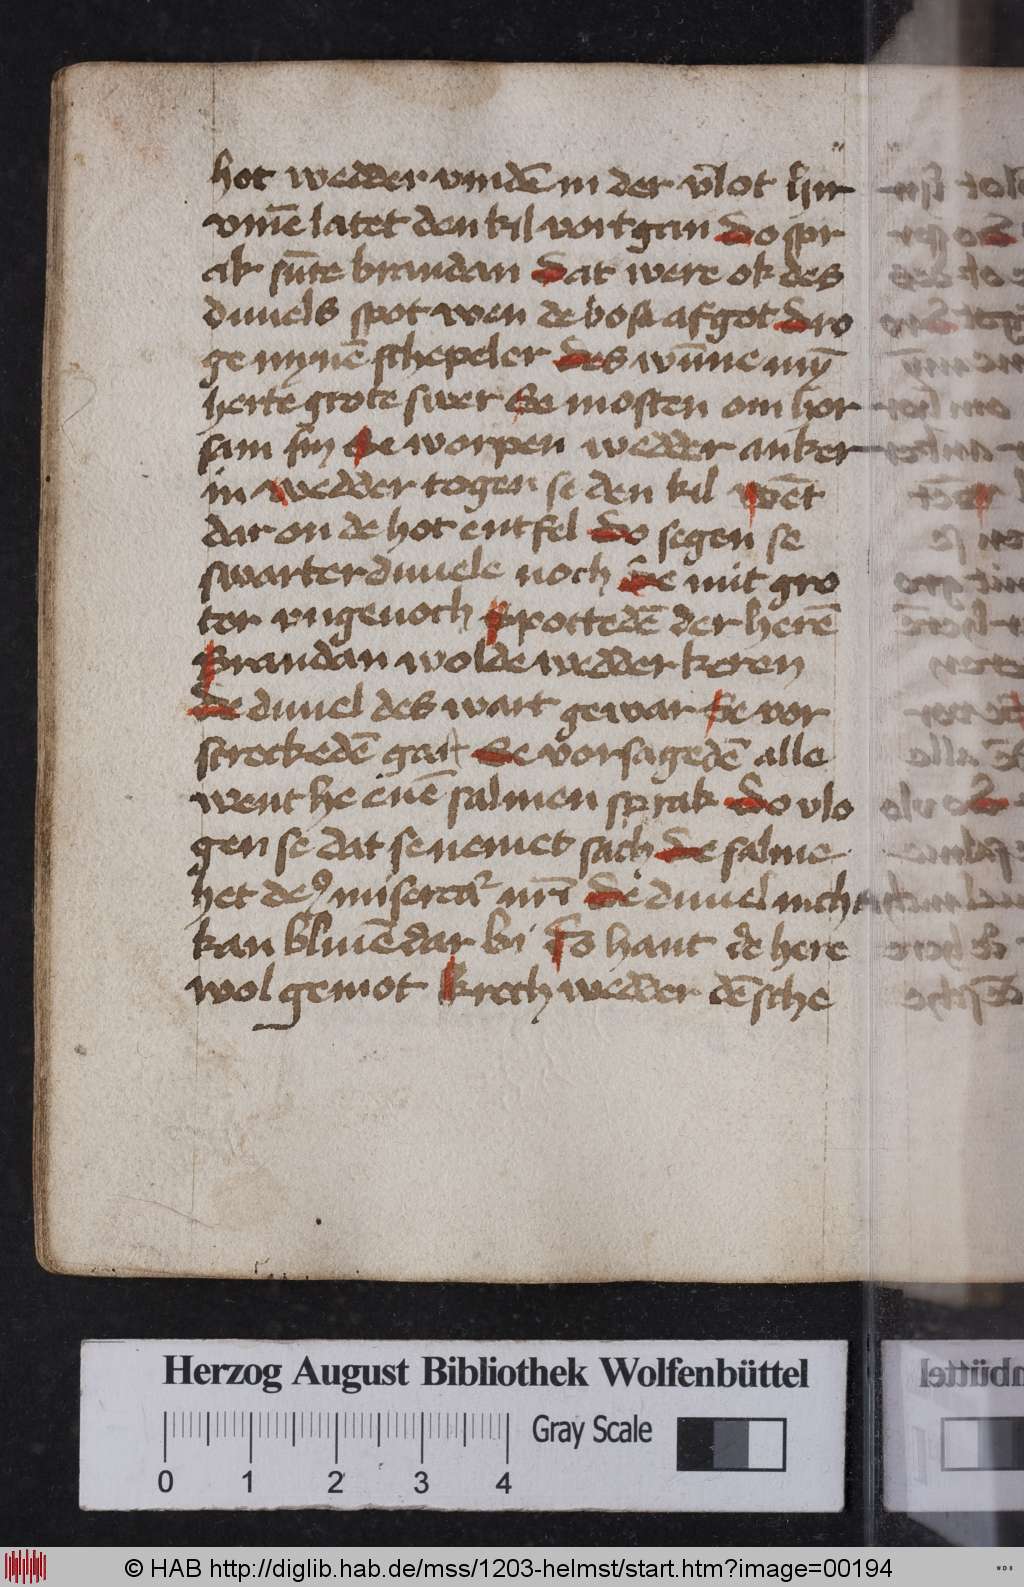 hot wedder vindē in der vlot hir
vm̄e latet den kil vort gan Do spr
ak sūte brandan Dat were ok des
duuels spot wen de bose afgot Dro
ge mynē schepeler Des wūne mȳ
herte grote swer Se mosten om hor
sam sin Se worpen wedder anker
in wedder togen se den kil wēt
dat on de hot entfel Do segen se
swarter duuele noch De mit gro
ter vngenoch Spottedē der herē
Brandan wolde wedder keren
De duuel des wart gewar Se vor
screckedē gar Se vorsagedē alle
went he enē salmen sprak Do vlo
gen se dat se nemet sach De salme
het deꝰ misereaͬ nr̄i De duuel nicht
kan bliuē dar bi To hant de here
wol gemot Krech wedder dē sche
Herzog August Bibliothek Wolfenbüttel
Gray Scale
0 1 2 3 4
© HAB http://diglib.hab.de/mss/1203-helmst/start.htm?image=00194